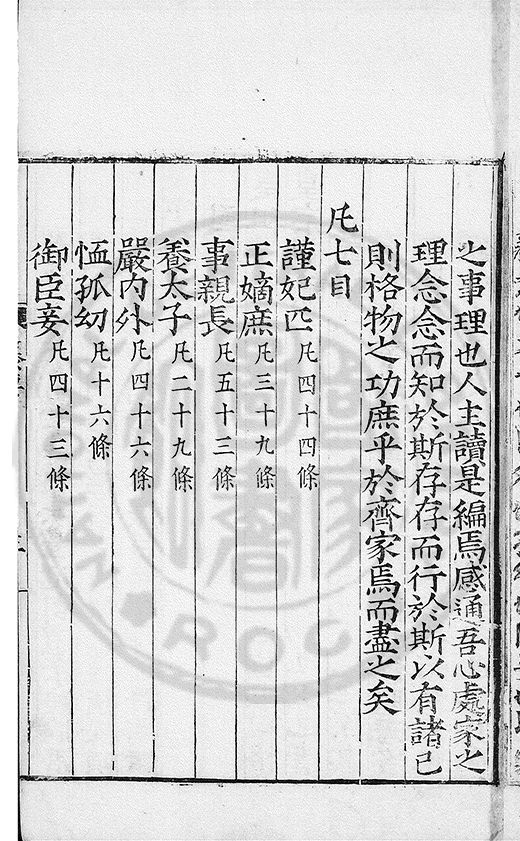 之事理也人主讀是編焉感通吾心處家之
理念念而知於斯存存而行於斯以有諸己
則格物之功庶乎於齊家焉而盡之矣
凡七目
謹妃匹凡四十四條
正嫡庶凡三十九條
事親長凡五十三條
養太子凡二十九條
嚴內外凡四十六條
恤孤幼凡十六條
御臣妾凡四十三條